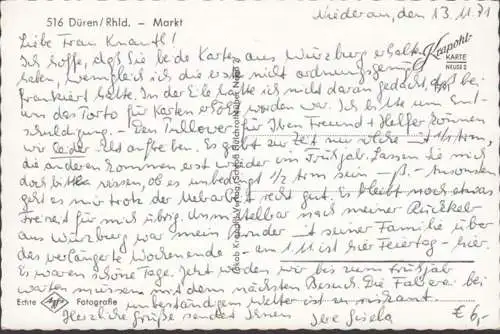 516 Düren/Rhld. – Markt
Niederau, den 13.11.71
Liebe Frau Knauth!
Ich hoffe, daß Sie beide Karten aus Würzburg erhalten
haben, wenngleich ich die erste nicht ordnungsgemäß
frankiert hatte. In der Eile hatte ich nicht daran gedacht, daß bei
uns das Porto für Karten erhöht worden war. Ich bitte um Ent-
schuldigung. – Den Pullover für Ihren Freund + Helfer können
wir leider nicht auftreiben. Es gibt zur Zeit nur welche mit 1/1 Arm,
die anderen kommen erst wieder im Frühjahr. Lassen Sie mich
doch bitte wissen, ob es unbedingt 1/2 Arm sein – Ansonsten
geht es mir trotz der Mehrarbeit recht gut. Es bleibt noch etwas
Freizeit für mich übrig. Unmittelbar nach meiner Rückkehr
aus Würzburg war mein Bruder mit seiner Familie über
das verlängerte Wochenende – am 1.11. ist hier Feiertag – hier.
Es waren schöne Tage. Jetzt werden wir bis zum Frühjahr
warten müssen mit dem nächsten Besuch. Die Fahrerei bei
unbeständigem Wetter ist zu riskant.
Herzliche Grüße sendet Ihnen Ihre Gisela
Krapohl-
KARTE
Echte Agfa Fotografie
€ 6,-